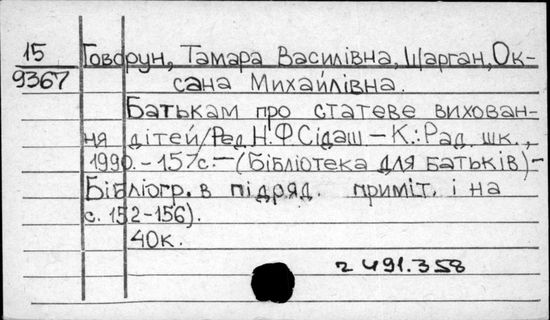 15 Говорун, Тамара Василівна, Шарган, Ок-
9367 сана Михайлівна.
Батькам про статеве вихован-
ня дітей/Ред. Н.Ф Сідаш – К.: Рад. шк.,
1990. – 157с. – (Бібліотека для батьків) –
Бібліогр. в підряд. приміт. і на
с. 152-156).
40к.
2 491.358